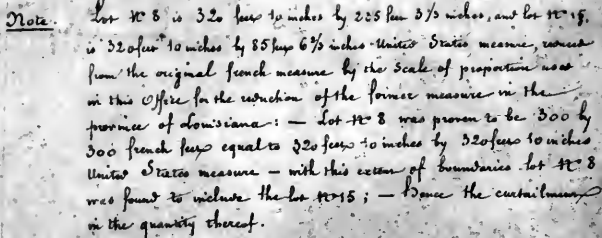 Note. Lot No 8 is 320 feet 10 inches by 235 feet 3⅓ inches, and lot No 15.
is 320 feet 10 inches by 85 feet 6⅔ inches United States measure, reduced
from the original french measure by the Scale of proportion used
in this Office for the reduction of the former measure in the
province of Louisiana: — Lot No 8 was proven to be 300 by
300 french feet equal to 320 feet 10 inches by 320 feet 10 inches
United States measure — with this extent of boundaries lot No 8
was found to include the lot No 15; — hence the curtailment
in the quantity thereof.